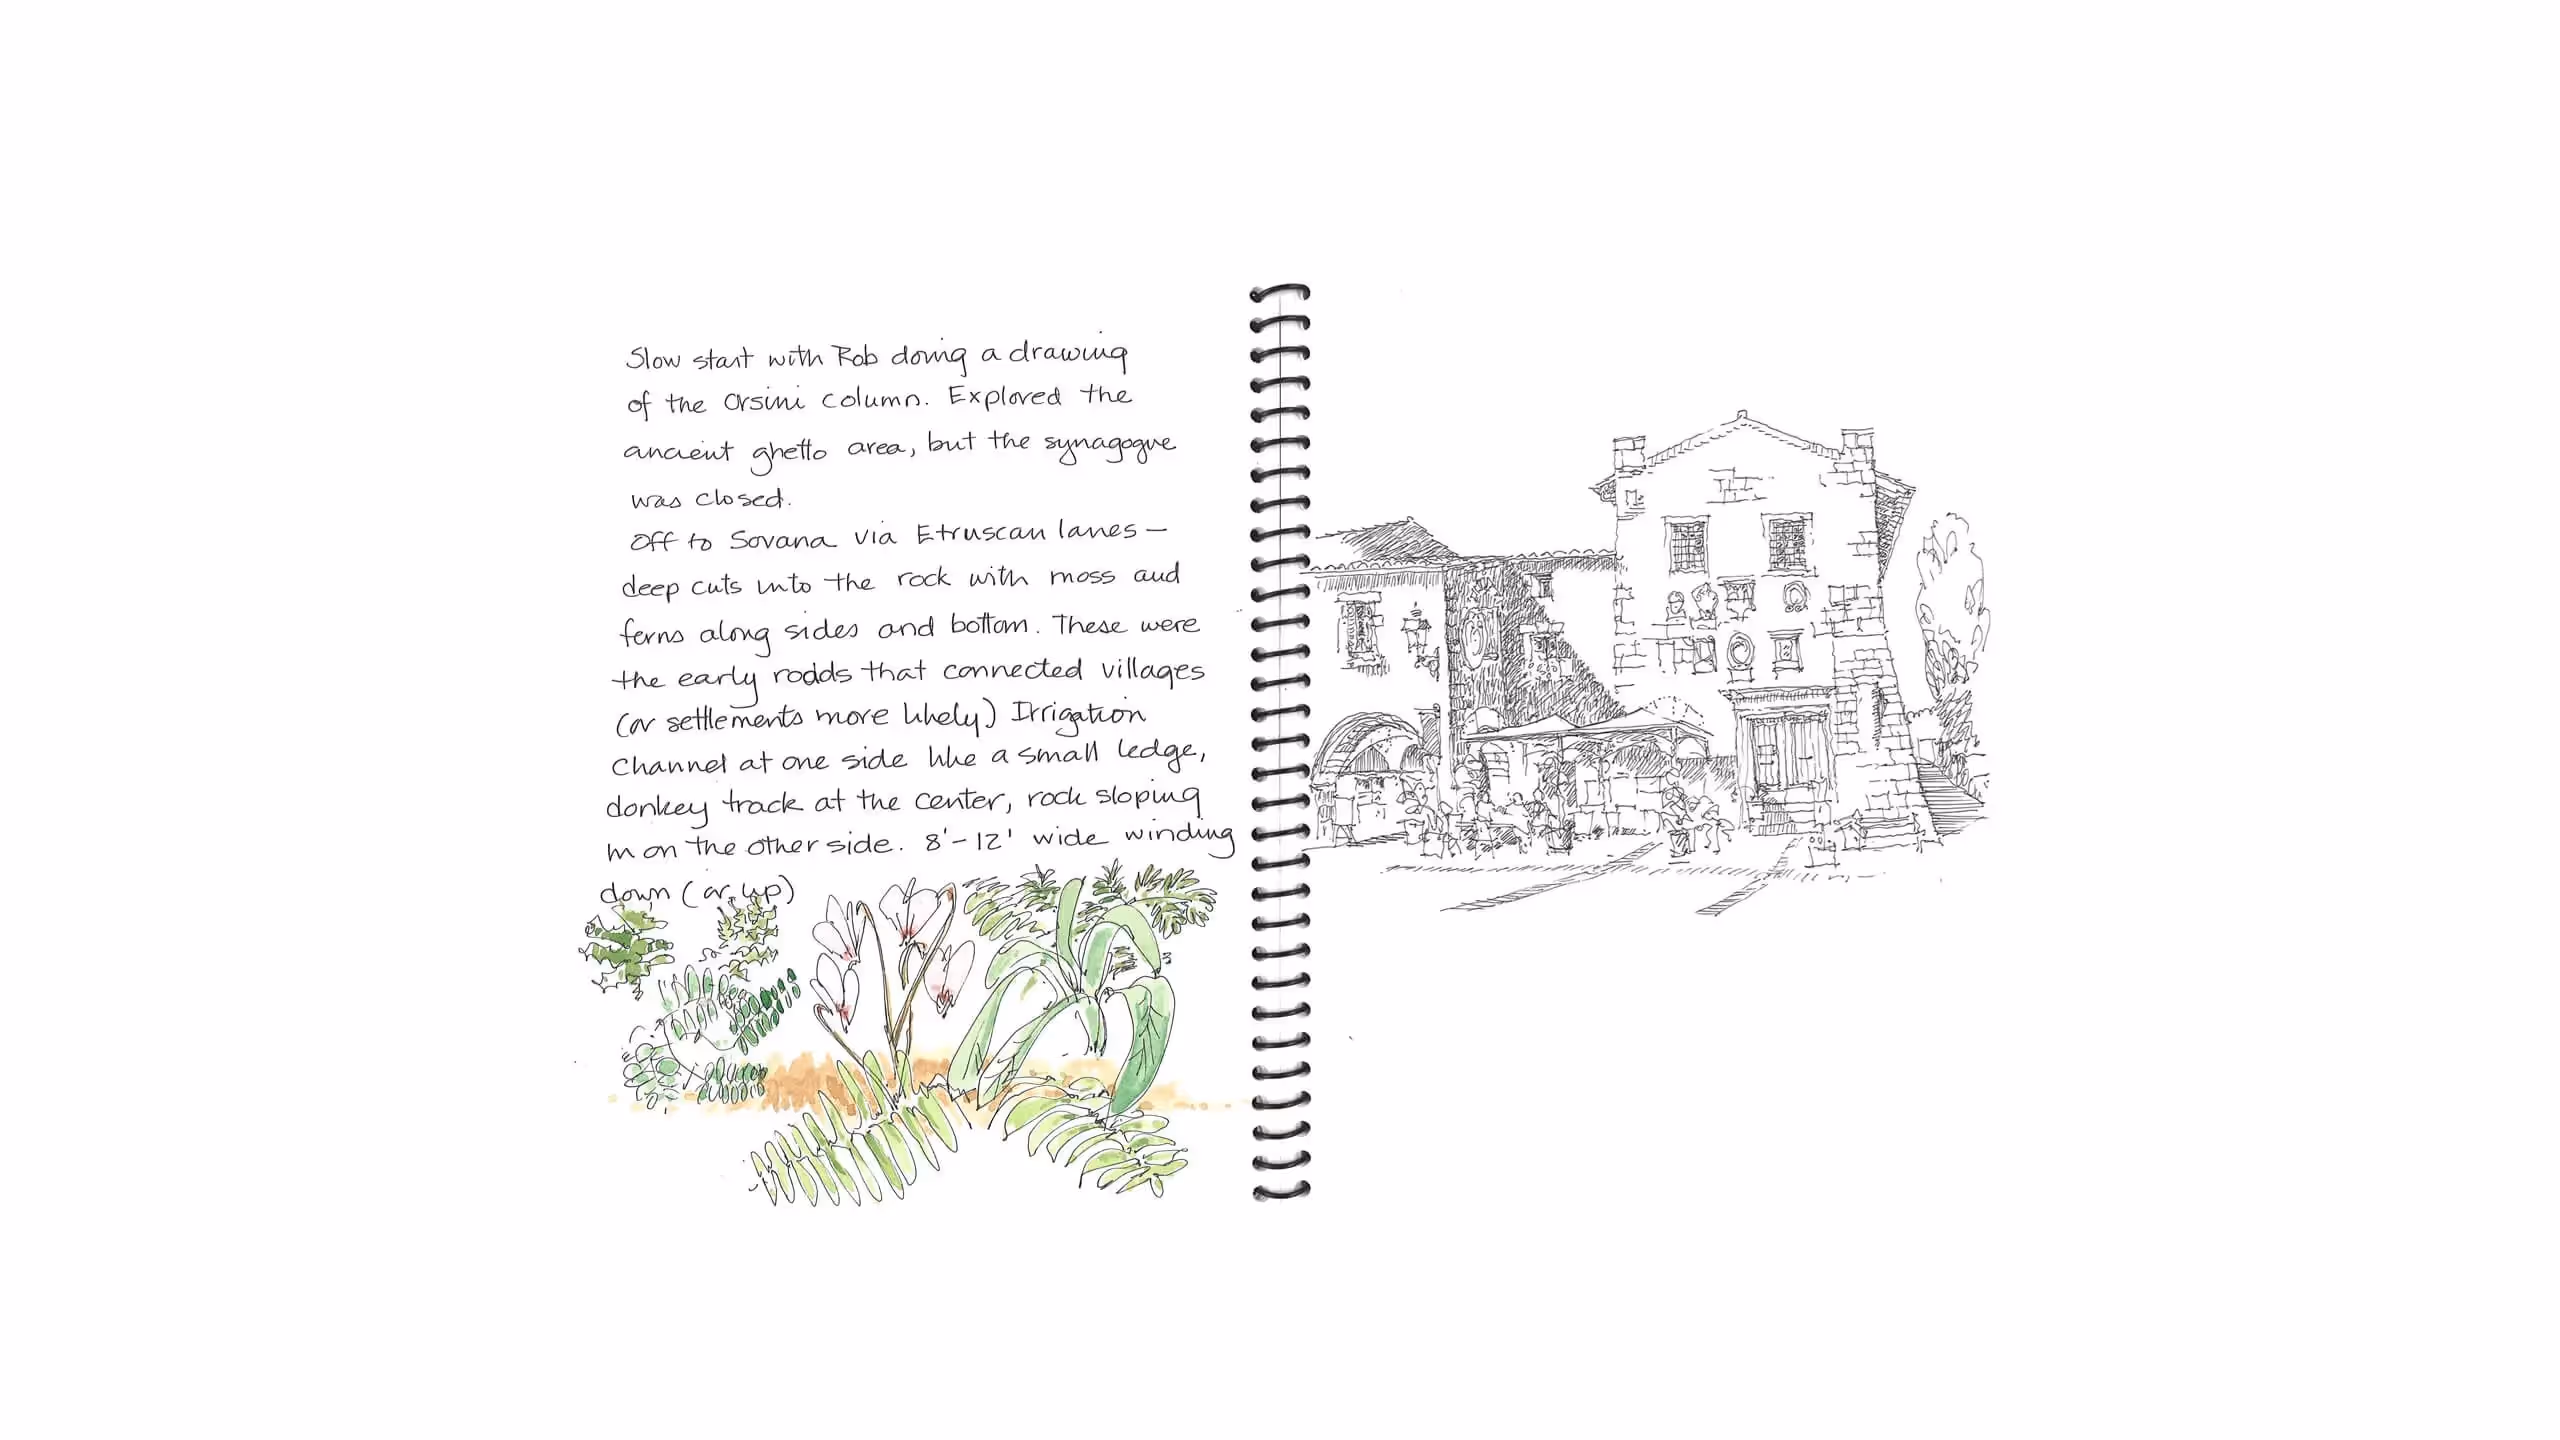 Slow start with Rob doing a drawing
of the Orsini column. Explored the
ancient ghetto area, but the synagogue
was closed.
Off to Sovana via Etruscan lanes —
deep cuts into the rock with moss and
ferns along sides and bottom. These were
the early roads that connected villages
(or settlements more likely) Irrigation
Channel at one side like a small ledge,
donkey track at the center, rock sloping
in on the other side. 8'-12' wide winding
down (or up)